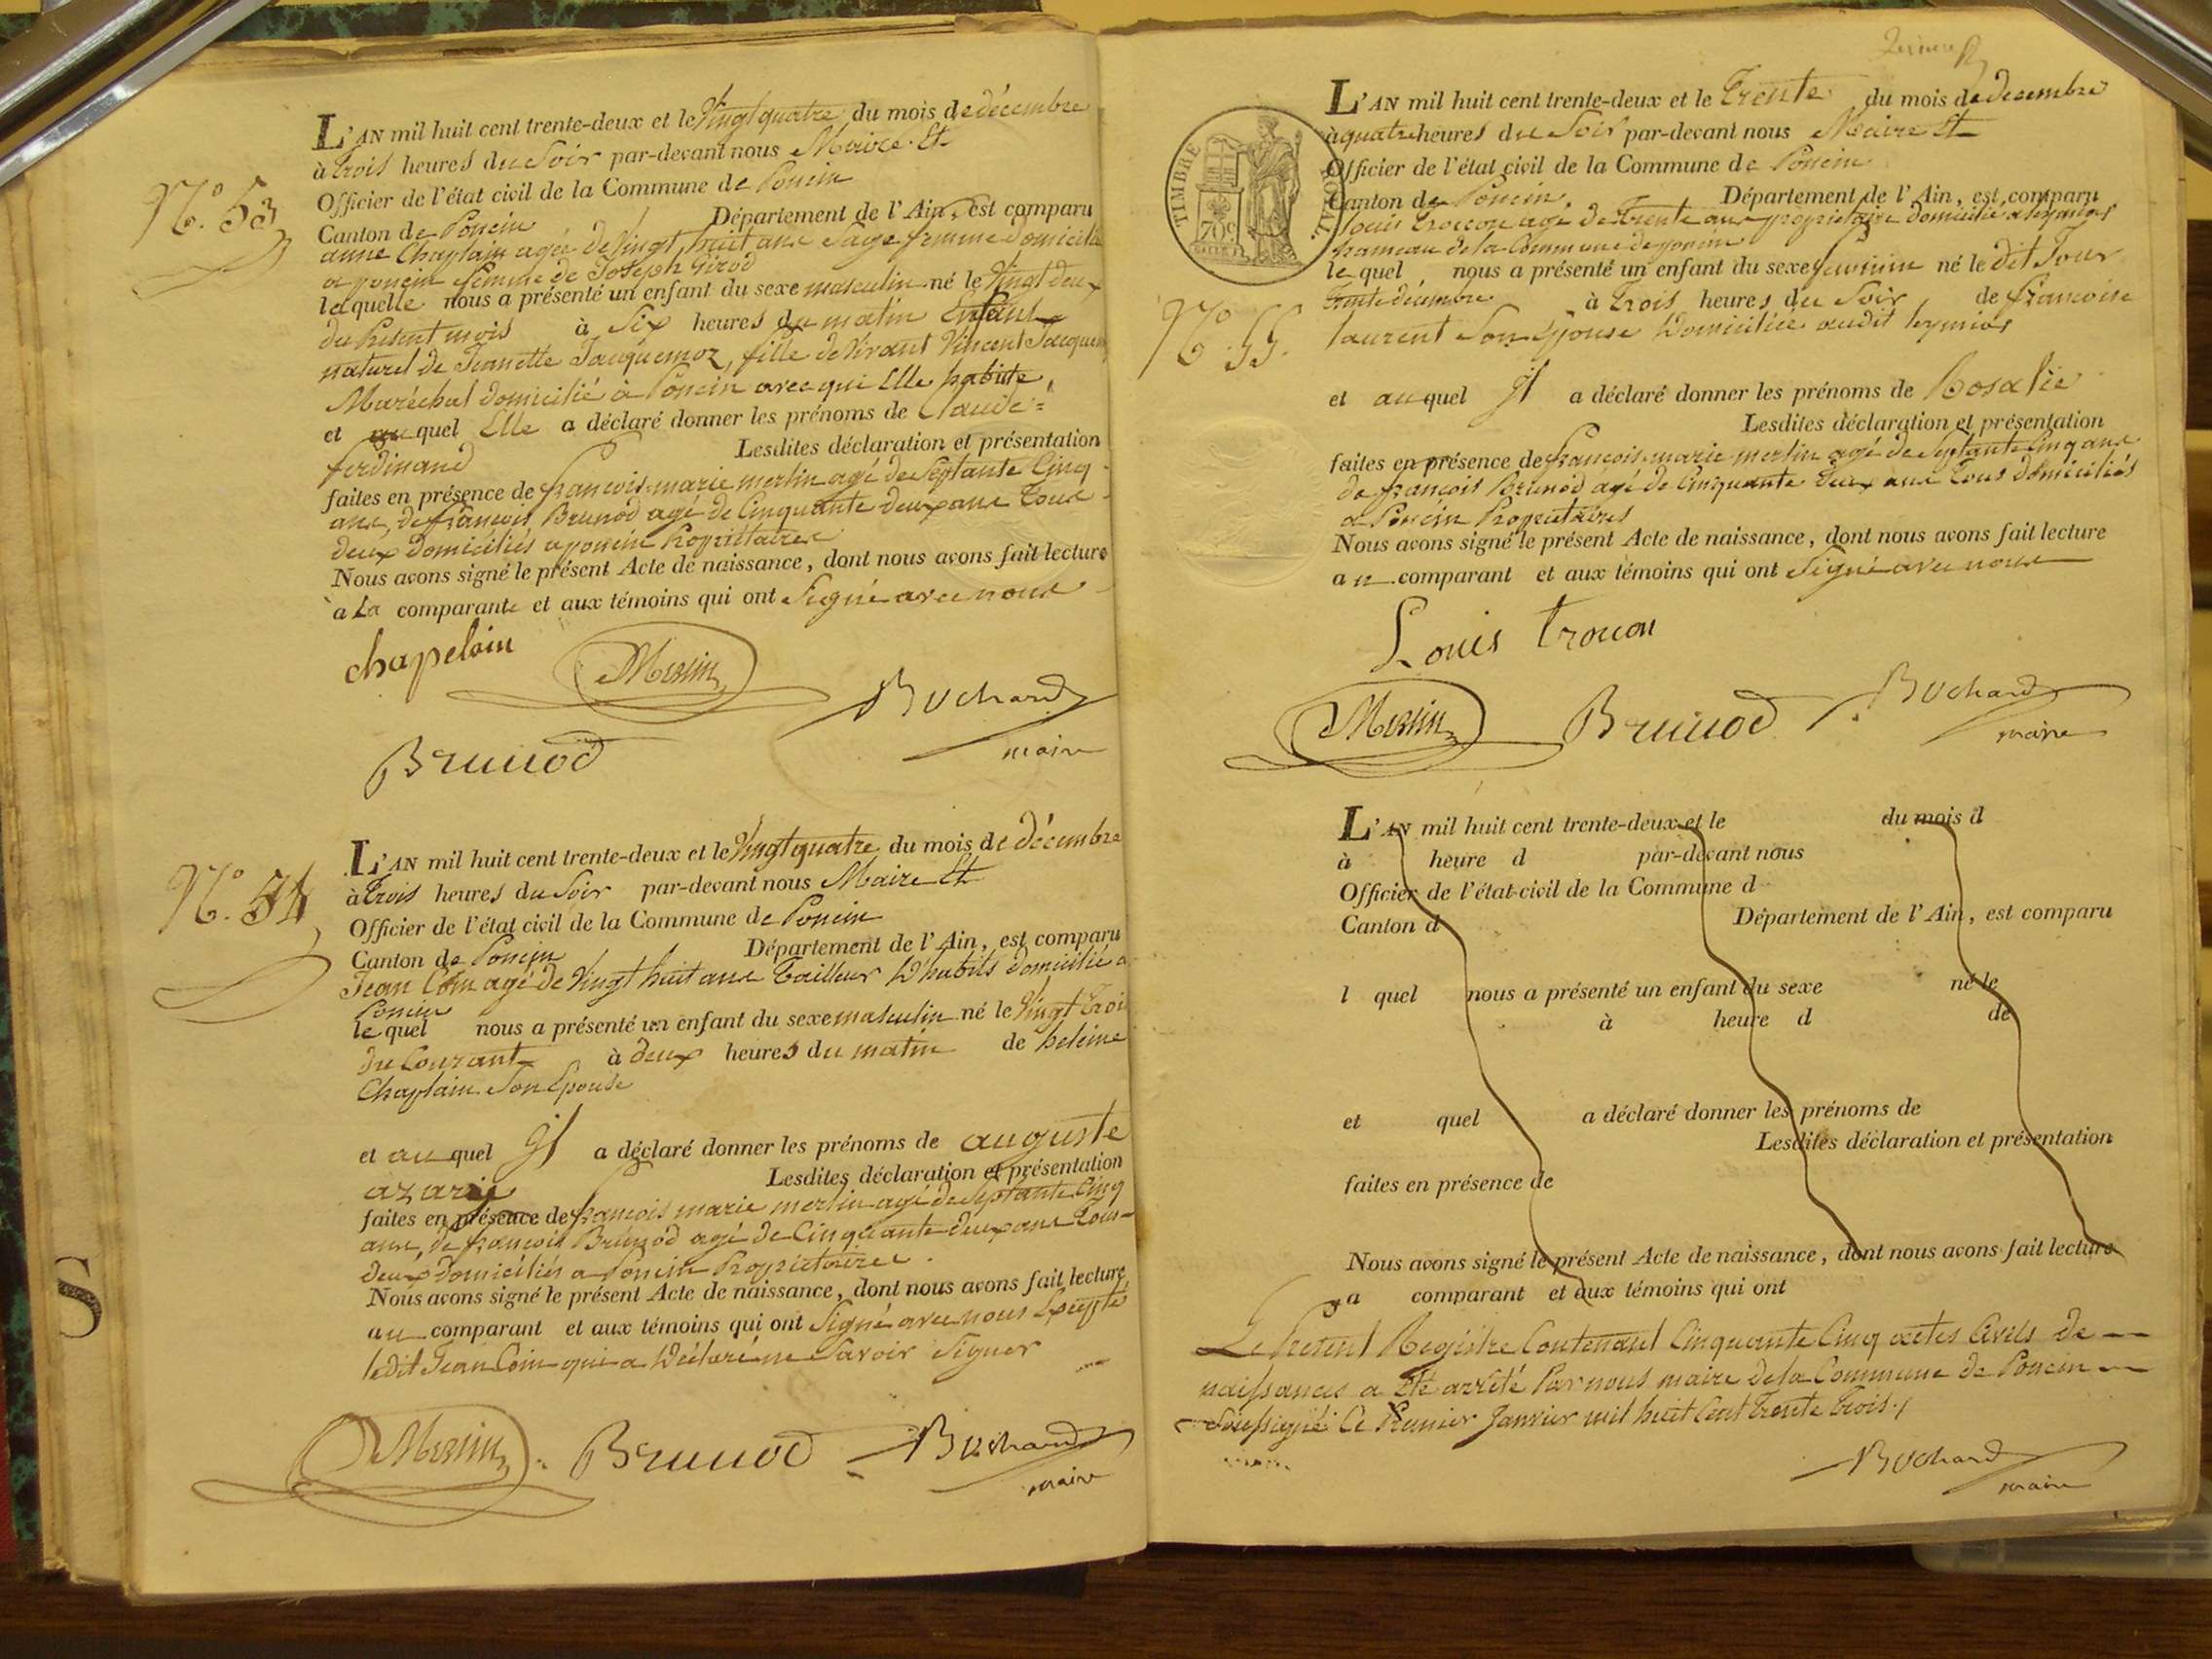 N.º 53
L'AN mil huit cent trente-deux et le Vingt quatre du mois de décembre
à trois heures du Soir par-devant nous Maire Et
Officier de l'état civil de la Commune de Poncin
Canton de Poncin Département de l'Ain, est comparu
anne Chaplain agée de Vingt huit ans Sage femme domicilié
a poncin femme de Joseph Girod
laquelle nous a présenté un enfant du sexe masculin né le Vingt deux
du Présent mois à Six heures du matin Enfant
naturel de Jeannette Jacquemoz, fille de Vivant Vincent Jacquem
Maréchal domicilié à Poncin avec qui Elle habite,
et auquel Elle a déclaré donner les prénoms de Claude =
ferdinand Lesdites déclaration et présentation
faites en présence de françois marie merlin agé de Septante Cinq
ans, de françois Brunod agé de Cinquante deux ans tous
deux domiciliés a poncin Propriétaires
Nous avons signé le présent Acte de naissance, dont nous avons fait lecture
à La comparante et aux témoins qui ont Signé avec nous
chapelain
Merlin
Bochard
maire
Brunod
N.º 54
L'AN mil huit cent trente-deux et le Vingt quatre du mois de décembre
à trois heures du Soir par-devant nous Maire Et
Officier de l'état civil de la Commune de Poncin
Canton de Poncin Département de l'Ain, est comparu
Jean Coin agé de Vingt huit ans Tailleur d'habits domicilié a
Poncin
lequel nous a présenté un enfant du sexe masculin né le Vingt trois
du Courant à deux heures du matin de heleine
Chaplain Son Epouse
et auquel il a déclaré donner les prénoms de auguste
azarie Lesdites déclaration et présentation
faites en présence de françois marie merlin agé de Septante Cinq
ans, de françois Brunod agé de Cinquante deux ans tous
deux domiciliés a Poncin Propriétaires
Nous avons signé le présent Acte de naissance, dont nous avons fait lecture
au comparant et aux témoins qui ont Signé avec nous Excepté
ledit Jean Coin qui a Déclaré ne Savoir Signer
Merlin Brunod Bochard
maire
S
TIMBRE ROYAL
70c
L'AN mil huit cent trente-deux et le Trente du mois de décembre
à quatre heures du Soir par-devant nous Maire Et
Officier de l'état civil de la Commune de Poncin
Canton de Poncin Département de l'Ain, est comparu
louis trocon agé de Trente ans propriétaire domicilié a leymiat
hameau de la Commune de poncin
lequel nous a présenté un enfant du sexe feminin né le dit Jour
Trente décembre à Trois heures du Soir, de françoise
N.º 55.
laurent Son Epouse Domiciliée audit leymiat
et auquel il a déclaré donner les prénoms de Rosalie
Lesdites déclaration et présentation
faites en présence de françois marie merlin agé de Septante Cinq ans
de françois Brunod agé de Cinquante deux ans tous domiciliés
a Poncin Propriétaires
Nous avons signé le présent Acte de naissance, dont nous avons fait lecture
au comparant et aux témoins qui ont Signé avec nous
Louis trocon
Merlin Brunod Bochard
maire
L'AN mil huit cent trente-deux et le du mois d
à heure d par-devant nous
Officier de l'état civil de la Commune d
Canton d Département de l'Ain, est comparu
l quel nous a présenté un enfant du sexe né le
à heure d de
et quel a déclaré donner les prénoms de
Lesdites déclaration et présentation
faites en présence de
Nous avons signé le présent Acte de naissance, dont nous avons fait lecture
a comparant et aux témoins qui ont
Le Présent Registre Contenant Cinquante Cinq actes Civils de
naissances a Eté arrêté Par nous maire de la Commune de Poncin
Soussigné Ce Premier Janvier mil huit Cent Trente Trois
Bochard
maire